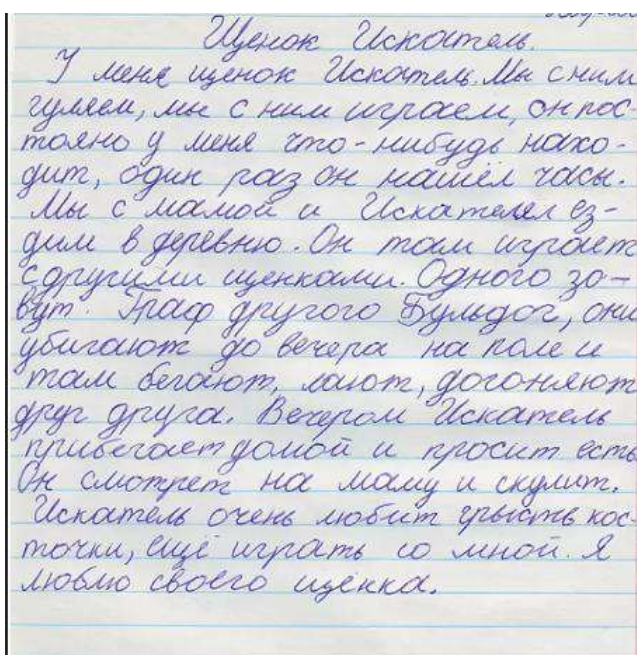 Щенок Искатель.
У меня щенок Искатель. Мы с ним
гуляем, мы с ним играем, он пос-
тояно у меня что-нибудь нахо-
дит, один раз он нашёл часы.
Мы с мамой и Искателел ез-
дим в деревню. Он там играет
с другими щенками. Одного зо-
вут. Граф другого Бульдог, они
убигают до вечера на поле и
там бегают, лают, догоняют
друг друга. Вечером Искатель
прибегает домой и просит есть
Он смотрет на маму и скулит.
Искатель очень любит грысть кос-
точки, ещё играть со мной. Я
люблю своего щенка.